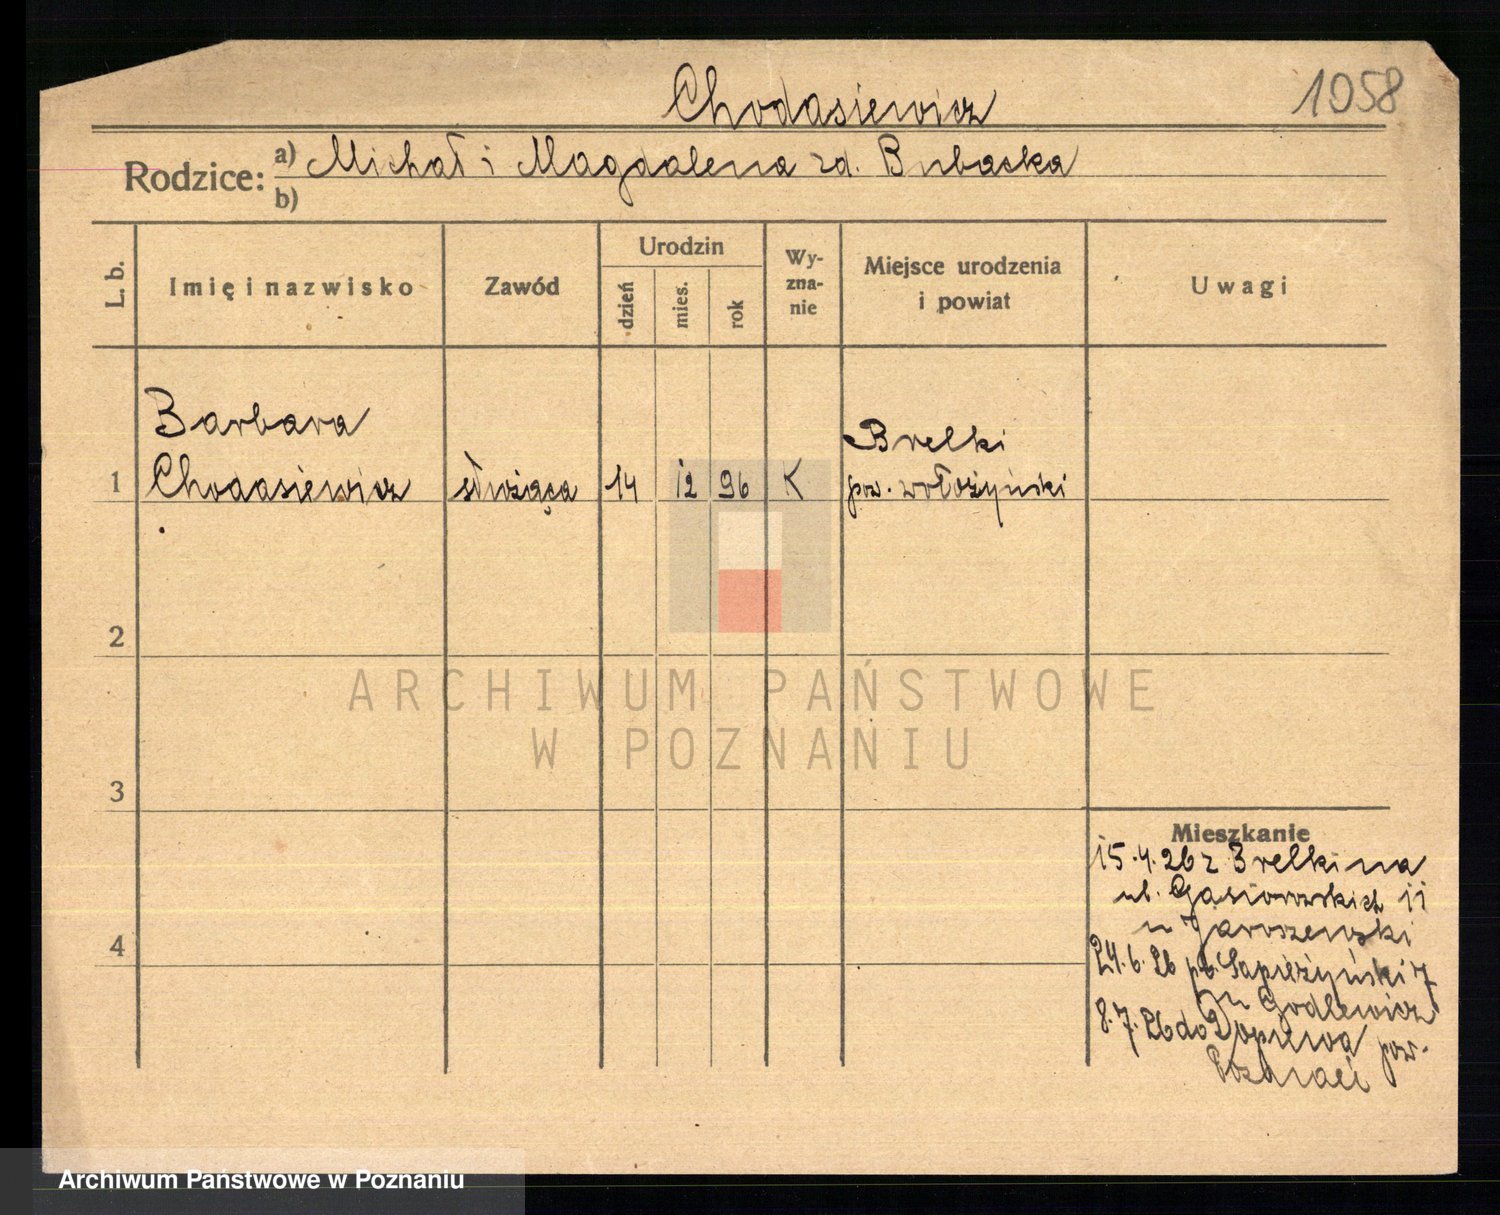 Chodasiewicz
1058
Rodzice: a) Michał i Magdalena zd. Bubacka
b)
L. b.
Imię i nazwisko
Zawód
Urodzin
dzień
mies.
rok
Wy-
zna-
nie
Miejsce urodzenia
i powiat
Uwagi
Barbara
Brelki
1 Chodasiewicz służąca 14 12 96 K pow. wołożyński
2
ARCHIWUM PAŃSTWOWE
W POZNANIU
3
Mieszkanie
15.4.26 z Brelki na
ul. Gąsiorowskich 11
u Jaroszewski
4
24.6.26 pl. Sapieżyński 7
u Godlewicz
8.7.26 do Dopiewa pow.
Poznań
Archiwum Państwowe w Poznaniu